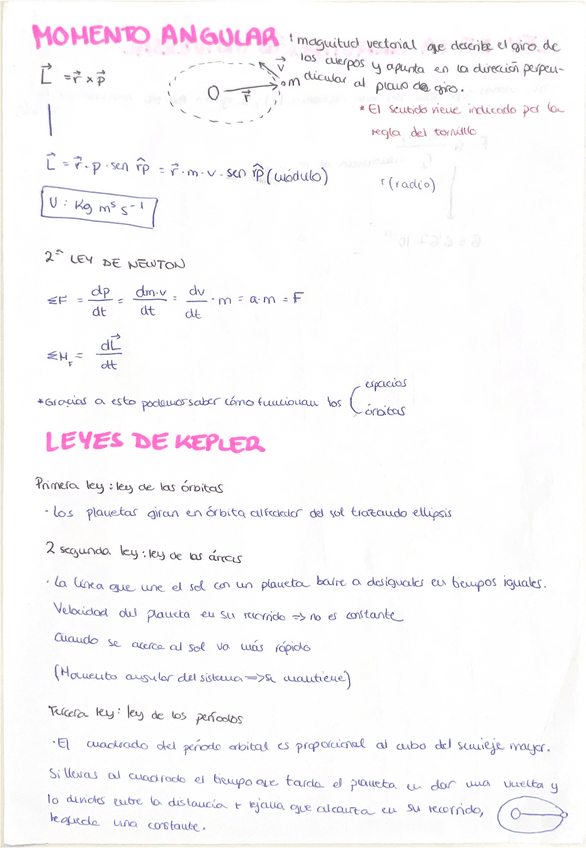 MOMENTO ANGULAR : magnitud vectorial que describe el giro de
los cuerpos y apunta en la dirección perpen-
dicular al plano de giro.
L⃗ = r⃗ x p⃗
O r⃗ v⃗ m
* El sentido viene indicado por la
regla del tornillo
L⃗ = r⃗ · p · sen r̂p = r⃗ · m · v · sen r̂p (módulo)
r (radio)
U : Kg m s s⁻¹
2ª LEY DE NEWTON
ΣF = dp/dt = dm·v/dt = dv/dt · m = a·m = F
ΣM_F = dL⃗/dt
*Gracias a esto podemos saber cómo funcionan los ( espacios
órbitas
LEYES DE KEPLER
Primera ley : ley de las órbitas
· Los planetas giran en órbita alrededor del sol trazando ellipsis
2 segunda ley : ley de las áreas
· La línea que une el sol con un planeta barre a desiguales en tiempos iguales.
Velocidad del planeta en su recorrido => no es constante
Cuando se acerca al sol va más rápido
(Momento angular del sistema => se mantiene)
Tercera ley : ley de los períodos
· El cuadrado del período orbital es proporcional al cubo del semieje mayor.
Si llevas al cuadrado el tiempo que tarda el planeta en dar una vuelta y
lo divides entre la distancia + lejana que alcanza en su recorrido,
te queda una constante.